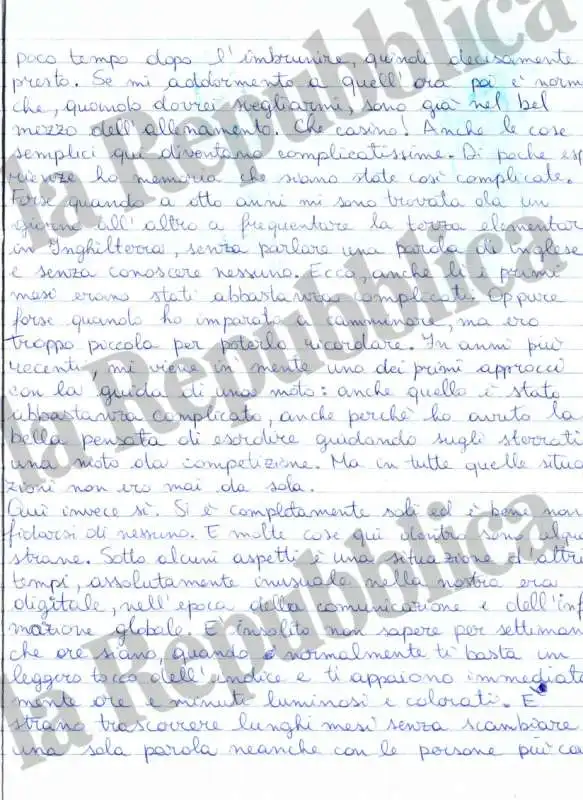 poco tempo dopo l'imbrunire, quindi decisamente
presto. Se mi addormento a quell'ora poi è norm
che, quando dovrei svegliarmi, sono già nel bel
mezzo dell'allenamento. Che casino! Anche le cose
semplici qui diventano complicatissime. Di poche esp
rienze ho memoria che siano state così complicate.
Forse quando a otto anni mi sono trovata da un
giorno all'altro a frequentare la terza elementar
in Inghilterra, senza parlare una parola di inglese
e senza conoscere nessuno. Ecco, anche lì i primi
mesi erano stati abbastanza complicati. Oppure
forse quando ho imparato a camminare, ma ero
troppo piccola per poterlo ricordare. In anni più
recenti, mi viene in mente uno dei primi approcci
con la guida di una moto: anche quello è stato
abbastanza complicato, anche perché ho avuto la
bella pensata di esordire guidando sugli sterrati
una moto da competizione. Ma in tutte quelle situa
zioni non ero mai da sola.
Qui invece sì. Si è completamente soli ed è bene non
fidarsi di nessuno. E molte cose qui dentro sono
strane. Sotto alcuni aspetti è una situazione d'altri
tempi, assolutamente inusuale nella nostra era
digitale, nell'epoca della comunicazione e dell'inf
mazione globale. E' insolito non sapere per settiman
che ore siano, quando normalmente ti basta un
leggero tocco dell'indice e ti appaiono immediata
mente ore e minuti luminosi e colorati. E'
strano trascorrere lunghi mesi senza scambiare
una sola parola neanche con le persone più ca
la Repubblica
la Repubblica
la Repubblica